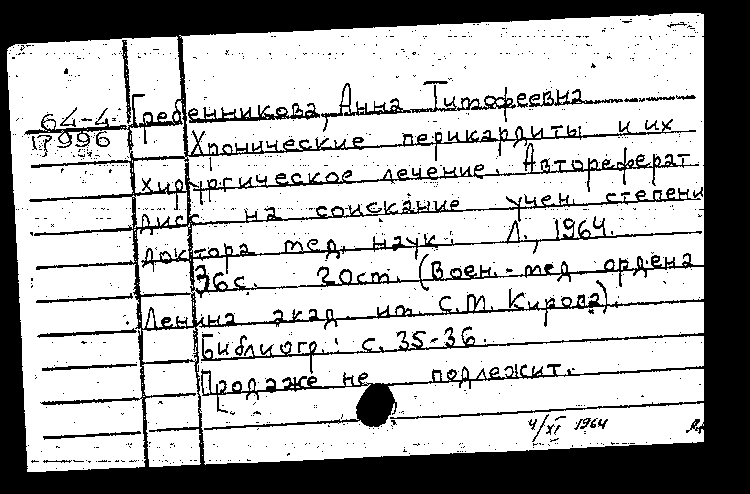 Гребенникова, Анна Тимофеевна
64-4
996
Хронические перикардиты и их
хирургическое лечение. Автореферат
дисс на соискание учен. степени
доктора мед. наук. Л., 1964.
36с. 20см. (Воен.-мед. ордена
Ленина акад. им. С.М. Кирова).
Библиогр.: с. 35-36.
Продаже не подлежит.
4/XI 1964